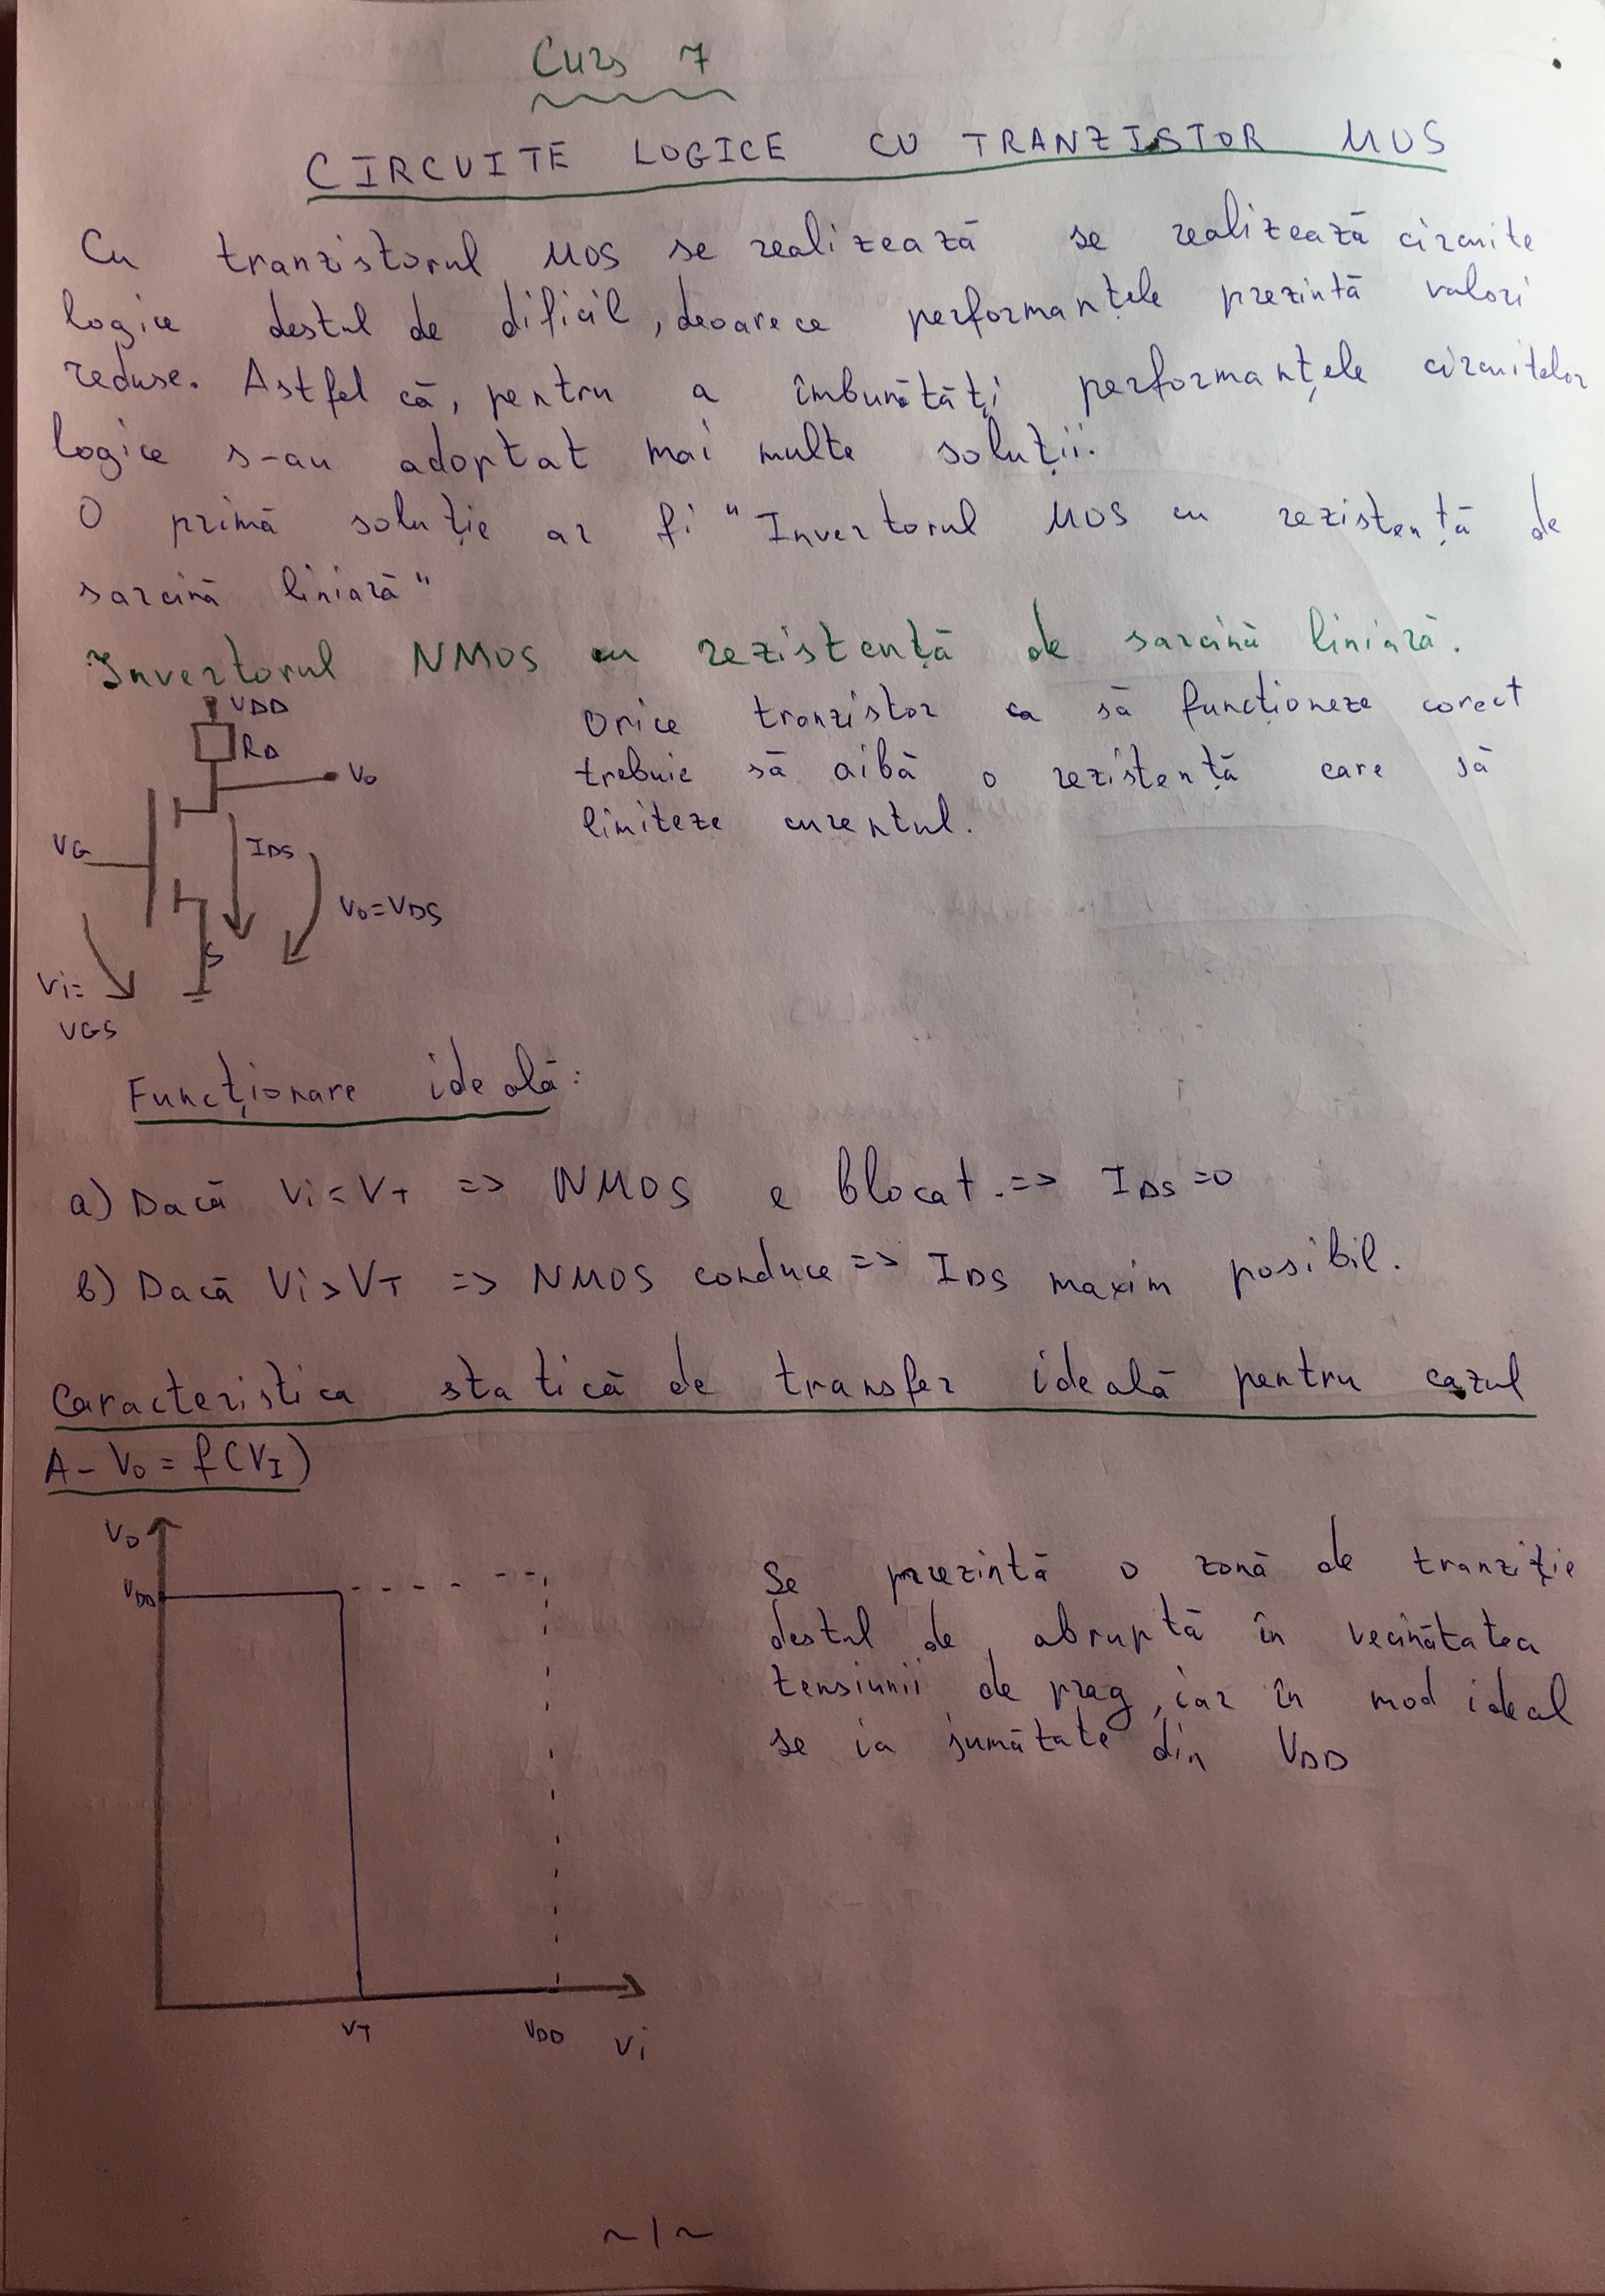 Curs 7
CIRCUITE LOGICE CU TRANZISTOR MOS
Cu tranzistorul MOS se realizează se realizează circuite
logice destul de dificil, deoarece performanțele prezintă valori
reduse. Astfel că, pentru a îmbunătăți performanțele circuitelor
logice s-au adoptat mai multe soluții.
O primă soluție ar fi "Invertorul MOS cu rezistență de
sarcină liniară"
Invertorul NMOS cu rezistență de sarcină liniară.
VDD
RD
Vo
VG
IDS
Vo=VDS
S
Vi=
VGS
Orice tranzistor ca să funcționeze corect
trebuie să aibă o rezistență care să
limiteze curentul.
Funcționare ideală:
a) Dacă Vi<VT => NMOS e blocat. => IDS=0
b) Dacă Vi>VT => NMOS conduce => IDS maxim posibil.
Caracteristica statică de transfer ideală pentru cazul
A- Vo = f(VI)
Vo
VDD
VT
VDD
Vi
Se prezintă o zonă de tranziție
destul de abruptă în vecinătatea
tensiunii de prag, iar în mod ideal
se ia jumătate din VDD
~1~